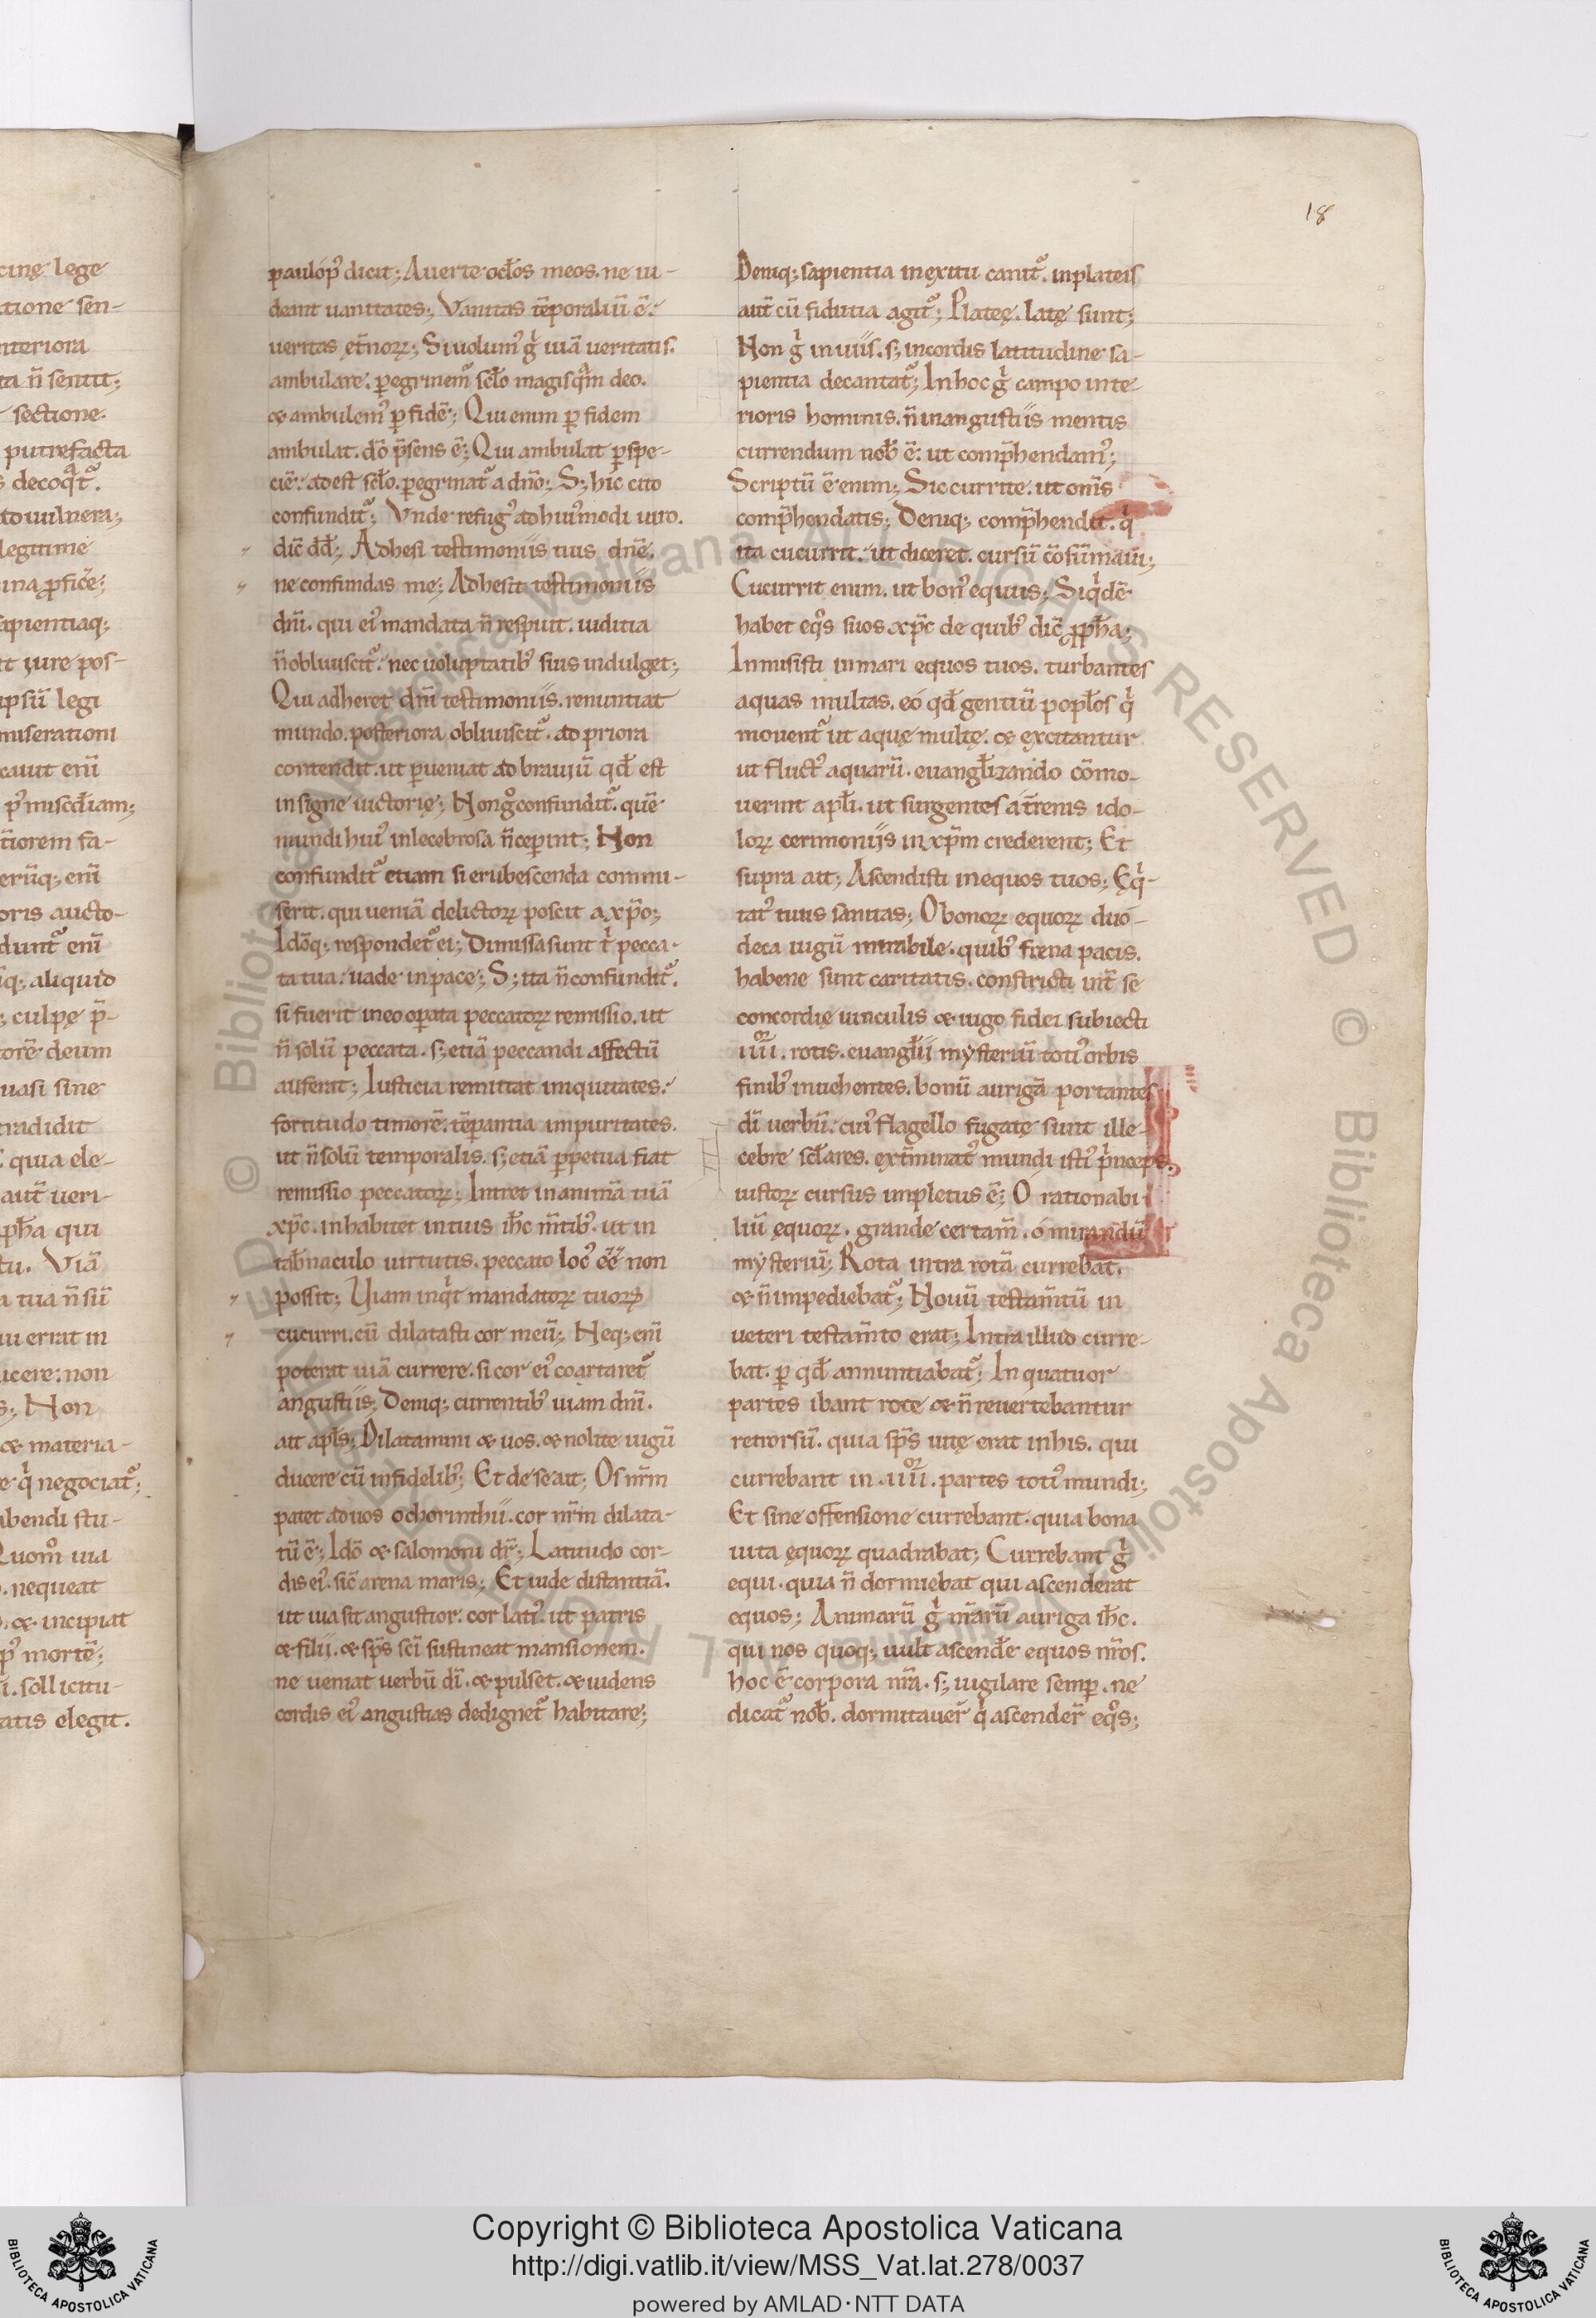 18
cinę lege
nteriora
ta n̄ sentit;
sectione
putrefacta
legitime
sapientiaq;
ipsū legi
miserationi
aliquid
culpę p̄-
deum
quasi sine
tradidit
quia ele-
aut̄ ueri-
qui
tu. Viā
a tua n̄ sū
ui errat in
ucere: non
s; Non
ꝛ materia-
abendi stu-
nequeat
ꝛ incipiat
mortē;
sollicitu-
atis elegit.
paulop᷒ dicit; Auerte ocłos meos. ne ui-
deant uanitates; Vanitas tēporaliū ē.
ueritas ęt̄norꝝ; Si uolum᷒ g̊ uiā ueritatis.
ambulare. ꝑegrinem᷒ scło magis qᷓm deo.
ꝛ ambulem᷒ ꝑ fidē; Qui enim ꝑ fidem
ambulat. dō p̄sens ē; Qui ambulat ꝑ spe-
ciē. adest scło. ꝑegrinat᷒ a dn̄o; S; hic cito
confundit᷒; Vnde refug᷒ ad hui᷒modi uiro.
dic̄ dđ; Adhesi testimoniis tuis dn̄e.
ne confundas me; Adhesit testimoniis
dn̄i. qui ei᷒ mandata n̄ respuit. iuditia
n̄ obliuiscit᷒. nec uoluptatib᷒ suis indulget;
Qui adheret dn̄i testimoniis. renuntiat
mundo. posteriora obliuiscit᷒. ad priora
contendit. ut ꝑueniat ad brauiū qđ est
insigne uictorię; Non g̊ confundit᷒. quē
mundi hui᷒ inlecebrosa n̄ ceperint; Non
confundit᷒ etiam si erubescenda commi-
serit. qui ueniā delictorꝝ poscit a xp̄o;
Idōq; respondet᷒ ei; Dimissa sunt tⁱ pecca-
ta tua. uade in pace; S; ita n̄ confundit᷒.
si fuerit in eo operata peccatorꝝ remissio. ut
n̄ solū peccata. s; etiā peccandi affectū
auferat; Iusticia remittat iniquitates.
fortitudo timorē. tēꝑantia impuritates.
ut n̄ solū temporalis. s; etiā ꝑpetua fiat
remissio peccatorꝝ; Intret in animā tuā
xp̄c. inhabitet in tuis ih̄c m̄tib᷒. ut in
tab̄naculo uirtutis. peccato loc᷒ eē non
possit; Viam inqⁱt mandatorꝝ tuorꝝ
cucurri. cū dilatasti cor meū; Neq; eni̅
poterat uiā currere. si cor ei᷒ coartaret᷒
angustiis; Deniq; currentib᷒ uiam dn̄i.
ait apłs; Dilatamini ꝛ uos. ꝛ nolite iugū
ducere cū infidelib᷒; Et de se ait; Os nr̄m
patet ad uos o chorinthii. cor nr̄m dilata-
tū ē; Idō ꝛ salomoni dr̄; Latitudo cor-
dis ei᷒. sic̄ arena maris; Et uide distantiā.
ut uia sit angustior. cor lati᷒. ut patris
ꝛ filii. ꝛ sp̄s sc̄i sustineat mansionem.
ne ueniat uerbū dī. ꝛ pulset. ꝛ uidens
cordis ei᷒ angustias dedignet᷒ habitare;
Deniq; sapientia in exitu canit᷒. in plateis
aut̄ cū fidutia agit᷒; Plateę. latę sunt;
Non gⁱ in uiis. s; in cordis latitudine sa-
pientia decantat᷒; In hoc gⁱ campo inte-
rioris hominis. n̄ in angustiis mentis
currendum nob̄ ē. ut comp̄hendam᷒;
Scriptū ē enim; Sic currite. ut om̄s
comp̄hendatis; Deniq; comp̄hendit. qⁱ
ita cucurrit. ut diceret. cursū cōsūmaui;
Cucurrit enim. ut bon᷒ equus; Siqⁱdē
habet eq᷒s suos xp̄c de quib᷒ dic̄ ꝓph̄a;
Inmisisti in mari equos tuos. turbantes
aquas multas. eó qđ gentiū popłos qⁱ
mouent᷒ ut aquę multę. ꝛ excitantur
ut fluct᷒ aquarū. euangłizando cōmo-
uerint apłi. ut surgentes a t̄renis ido-
lorꝝ cerimoniis in xp̄m crederent; Et
supra ait; Ascendisti in equos tuos; Eqⁱ-
tat᷒ tuus sanitas; O bonorꝝ equorꝝ duo-
deca iugū mirabile. quib᷒ frena pacis.
habene sunt caritatis. constricti int̄ se
concordię uinculis ꝛ iugo fidei subiecti
.iiii. rotis. euangłii mysteriū toti᷒ orbis
finib᷒ inuehentes. bonū aurigā portantes
dī uerbū. cui᷒ flagello fugatę sunt ille-
cebre scłares. ext̄minat᷒ mundi isti᷒ pⁱnceps.
iustorꝝ cursus impletus ē; O rationabi-
liū equorꝝ. grande certam̄. ó mirandū
mysteriū; Rota intra rotā currebat.
ꝛ n̄ impediebat᷒; Nouū testam̄tū in
ueteri testam̄to erat; Intra illud curre-
bat. ꝑ qđ annuntiabat᷒; In quatuor
partes ibant rotę ꝛ n̄ reuertebantur
retrorsū. quia sp̄s uitę erat in his. qui
currebant in .iiii. partes toti᷒ mundi;
Et sine offensione currebant. quia bona
uita equorꝝ quadrabat; Currebant gⁱ
equi. quia n̄ dormiebat qui ascenderat
equos; Animarū gⁱ nr̄arū auriga ih̄c.
qui nos quoq; uult ascend̄e equos nr̄os.
hoc ē corpora nr̄a. s; uigilare semꝑ. ne
dicat᷒ nob̄. dormitauer̄ qⁱ ascender̄ eq᷒s;
© Biblioteca Apostolica Vaticana. ALL RIGHTS RESERVED
Copyright © Biblioteca Apostolica Vaticana
http://digi.vatlib.it/view/MSS_Vat.lat.278/0037
powered by AMLAD·NTT DATA
BIBLIOTECA APOSTOLICA VATICANA
BIBLIOTECA APOSTOLICA VATICANA